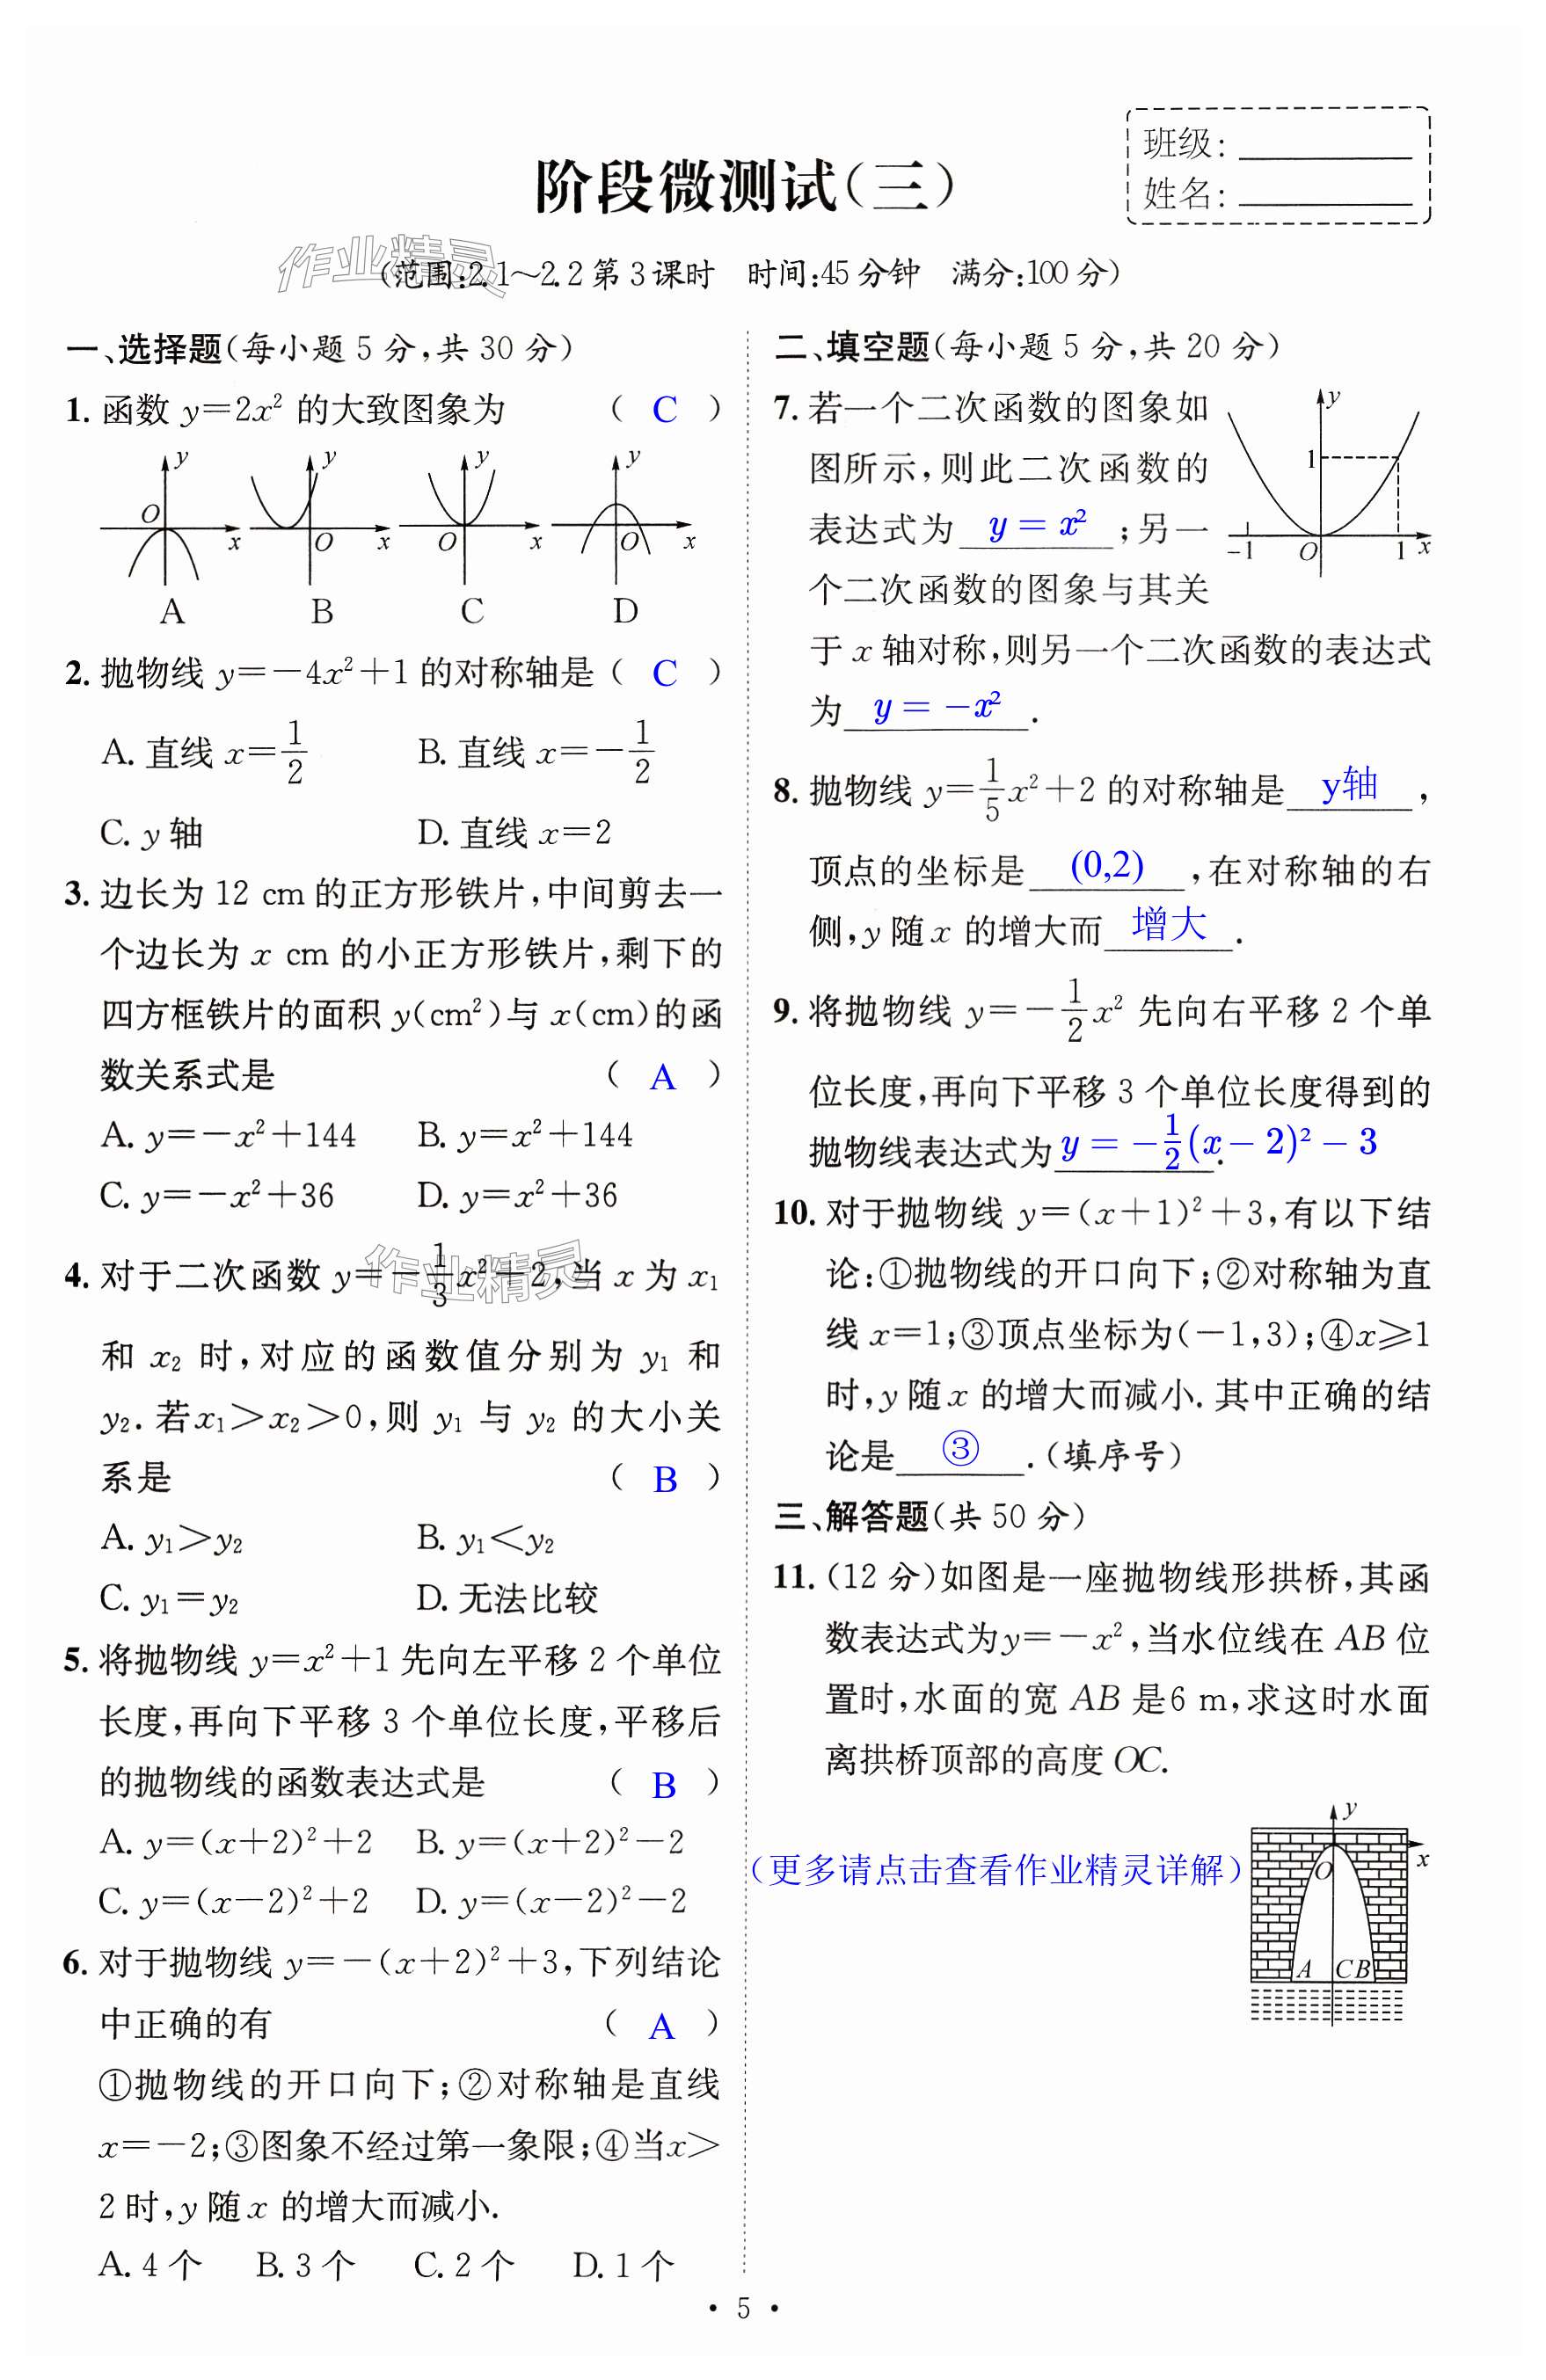 班级:
姓名:
阶段微测试(三)
作业精灵
(范围:2.1~2.2第3课时 时间:45分钟 满分:100分)
一、选择题(每小题5分,共30分)
1. 函数 y=2x² 的大致图象为 ( C )
y y y y
O x O x O x O x
A B C D
2. 抛物线 y=-4x²+1 的对称轴是( C )
A. 直线 x=1/2 B. 直线 x=-1/2
C. y 轴 D. 直线 x=2
3. 边长为 12 cm 的正方形铁片,中间剪去一
个边长为 x cm 的小正方形铁片,剩下的
四方框铁片的面积 y(cm²)与 x(cm)的函
数关系式是 ( A )
A. y=-x²+144 B. y=x²+144
C. y=-x²+36 D. y=x²+36
作业精灵
4. 对于二次函数 y=-1/3x²+2,当 x 为 x₁
和 x₂ 时,对应的函数值分别为 y₁ 和
y₂. 若x₁>x₂>0,则 y₁ 与 y₂ 的大小关
系是 ( B )
A. y₁>y₂ B. y₁<y₂
C. y₁=y₂ D. 无法比较
5. 将抛物线 y=x²+1 先向左平移 2 个单位
长度,再向下平移 3 个单位长度,平移后
的抛物线的函数表达式是 ( B )
A. y=(x+2)²+2 B. y=(x+2)²-2
C. y=(x-2)²+2 D. y=(x-2)²-2
6. 对于抛物线 y=-(x+2)²+3,下列结论
中正确的有 ( A )
①抛物线的开口向下;②对称轴是直线
x=-2;③图象不经过第一象限;④当x>
2 时,y 随 x 的增大而减小.
A. 4 个 B. 3 个 C. 2 个 D. 1 个
二、填空题(每小题5分,共20分)
7. 若一个二次函数的图象如
图所示,则此二次函数的
表达式为 y = x² ;另一
个二次函数的图象与其关
于 x 轴对称,则另一个二次函数的表达式
为 y = -x² .
y
1
-1 O 1 x
8. 抛物线 y=1/5x²+2 的对称轴是 y轴 ,
顶点的坐标是 (0,2) ,在对称轴的右
侧,y 随 x 的增大而 增大 .
9. 将抛物线 y=-1/2x² 先向右平移 2 个单
位长度,再向下平移 3 个单位长度得到的
抛物线表达式为 y = -1/2(x-2)²-3 .
10. 对于抛物线 y=(x+1)²+3,有以下结
论:①抛物线的开口向下;②对称轴为直
线 x=1;③顶点坐标为(-1,3);④x⩾1
时,y 随 x 的增大而减小. 其中正确的结
论是 ③ .(填序号)
三、解答题(共50分)
11. (12 分)如图是一座抛物线形拱桥,其函
数表达式为y=-x²,当水位线在 AB 位
置时,水面的宽 AB 是6 m,求这时水面
离拱桥顶部的高度 OC.
(更多请点击查看作业精灵详解)
y
x
O
A C B
· 5 ·